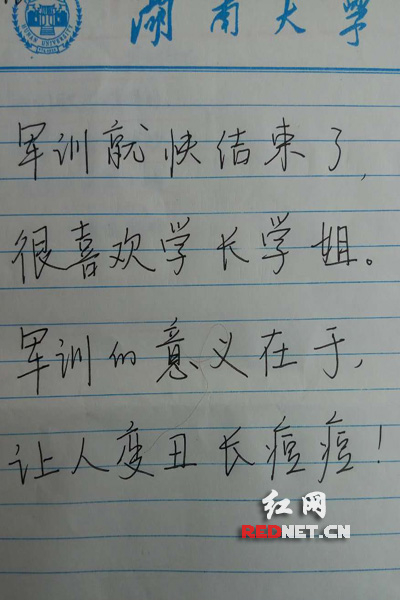 湖南大學
军训就快结束了，
很喜欢学长学姐。
军训的意义在于，
让人变丑长痘痘！
红网
REDNET.CN